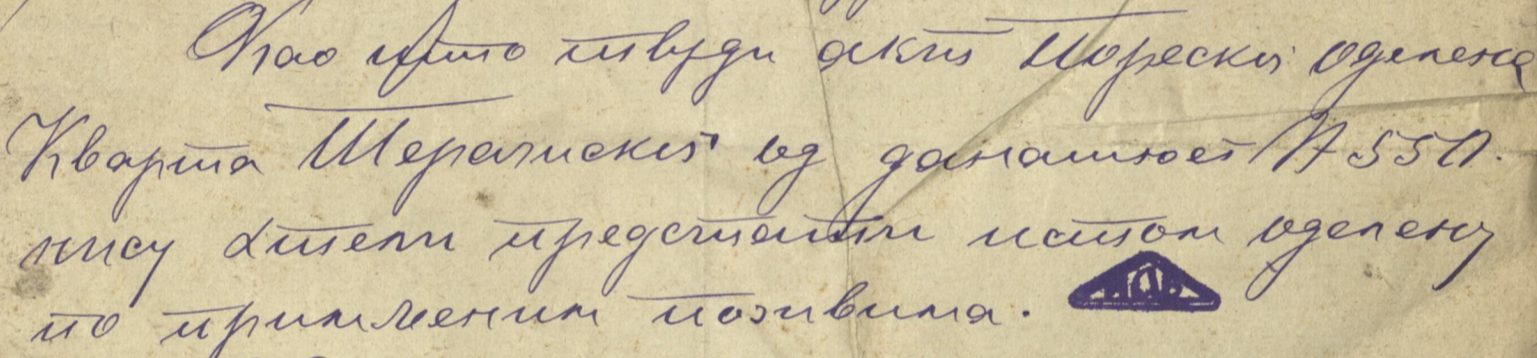 Као што тврди акт Пореског одељена
Кварта Теразиског од данашњег № 5550.
нису хтели предстати истом одељену
по примљеним позивима.